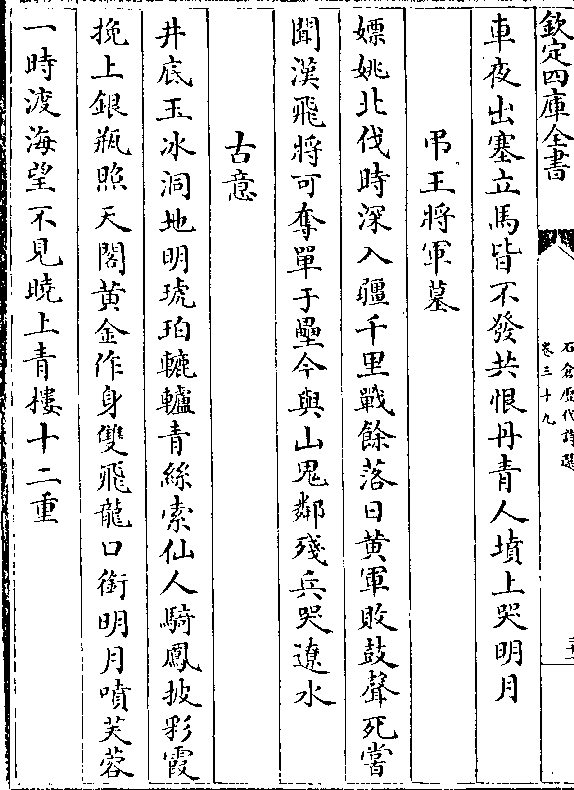 欽定四庫全書
石倉歷代詩選
卷三十九
車夜出塞立馬皆不發共恨丹青人墳上哭明月
弔王將軍墓
嫖姚北伐時深入疆千里戰餘落日黄軍敗鼓聲死嘗
聞漢飛將可奪單于壘今與山鬼鄰殘兵哭遼水
古意
井底玉冰洞地明琥珀轆轤青絲索仙人騎鳳披彩霞
挽上銀瓶照天閣黄金作身雙飛龍口銜明月噴芙蓉
一時渡海望不見曉上青樓十二重